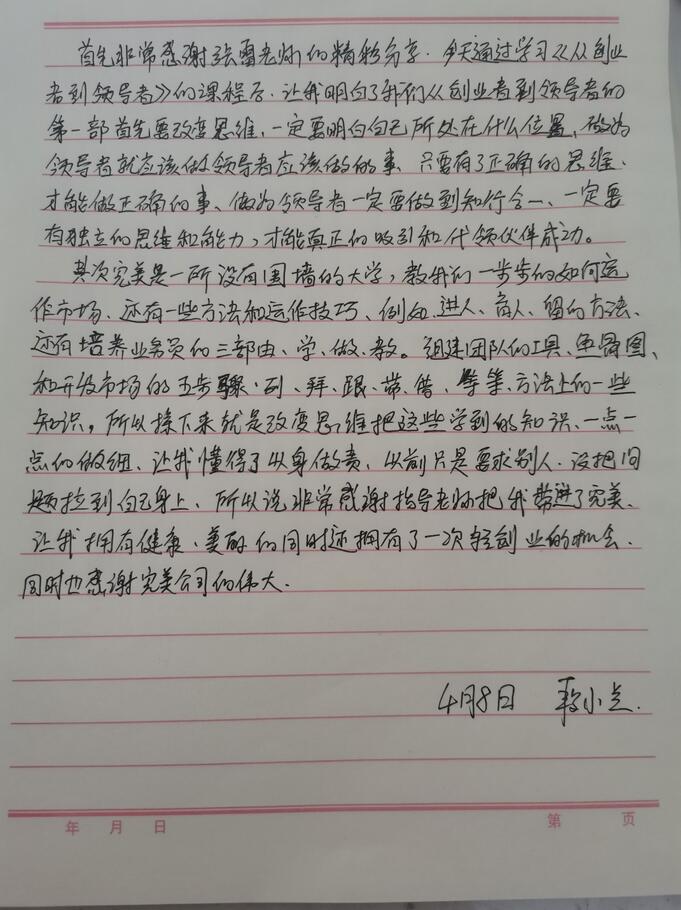 首先非常感谢张雷老师的精彩分享.今天通过学习《从创业
者到领导者》的课程后.让我明白了我们从创业者到领导者的
第一部首先要改变思维、一定要明白自己所处在什么位置,做为
领导者就应该做领导者应该做的事、只要有了正确的思维、
才能做正确的事、做为领导者一定要做到知行合一、一定要
有独立的思维和能力,才能真正的吸引和代领伙伴成功。
其次完美是一所没有围墙的大学,教我们一步步的如何运
作市场、还有一些方法和运作技巧、例如.进人、育人、留的方法、
还有培养业务员的三部曲、学、做、教。组建团队的工具、鱼骨图、
和开发市场的五步骤.列、拜、跟、带、借、等等、方法上的一些
知识。所以接下来就是改变思维把这些学到的知识、一点一
点的做细、让我懂得了以身做责、以前只是要求别人.没把问
题拉到自己身上、所以说非常感谢指导老师把我带进了完美、
让我拥有健康、美丽的同时还拥有了一次轻创业的机会.
同时也感谢完美公司的伟大.
4月8日 小兰.
年 月 日
第 页